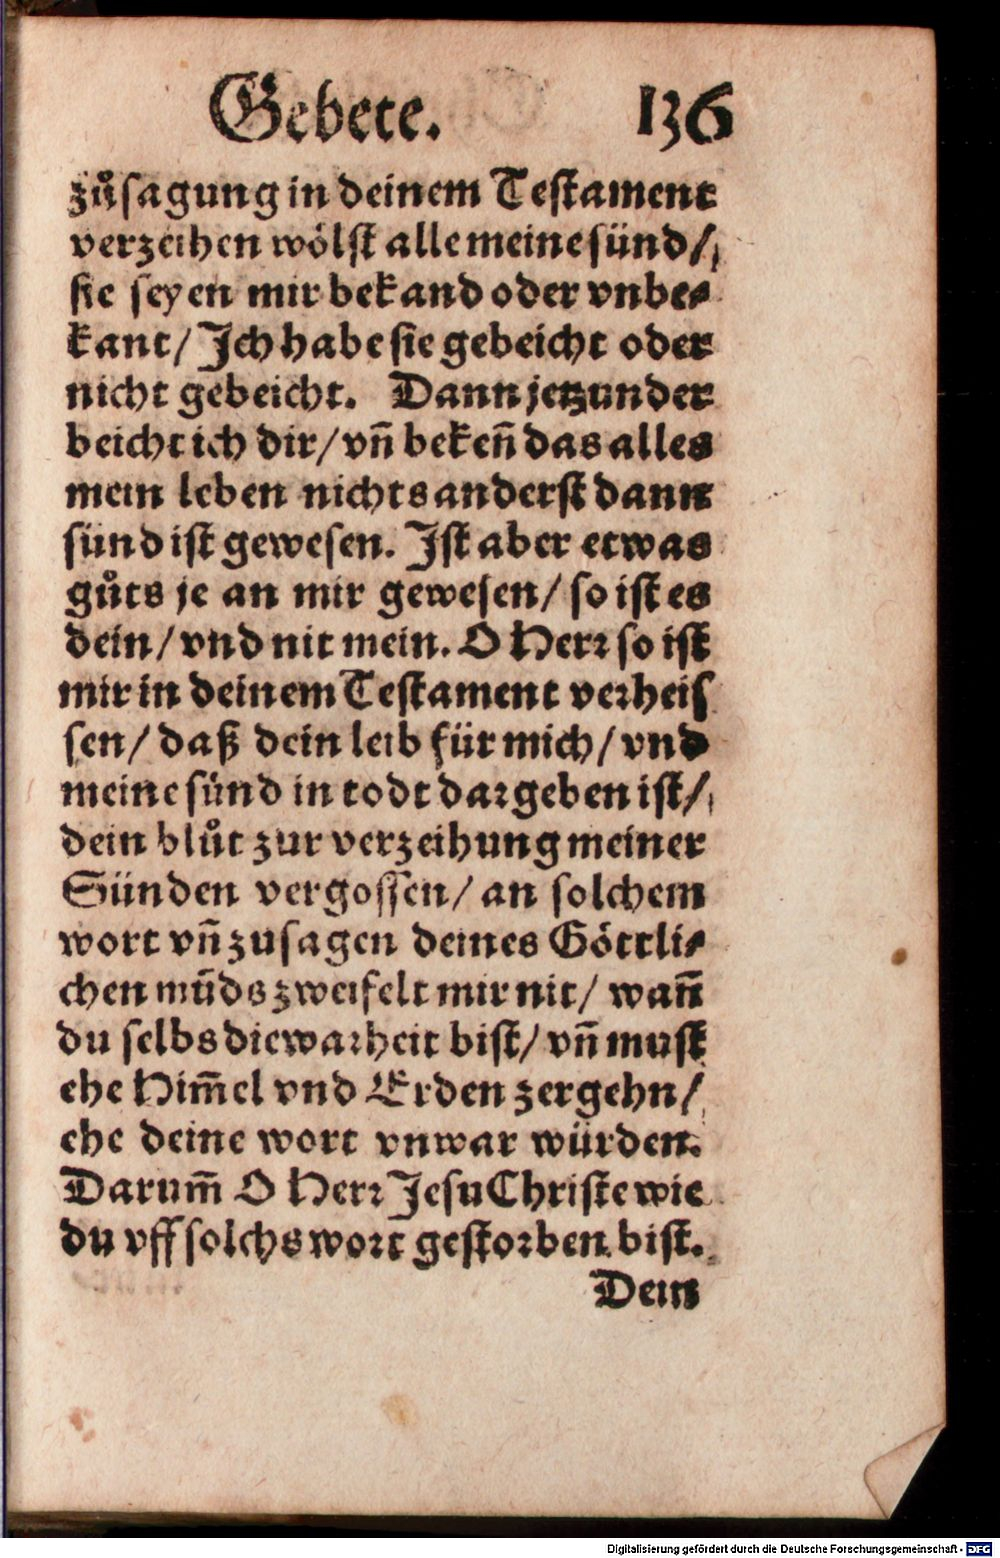 Gebete. 136
zůsagung in deinem Testament
verzeihen wölst alle meine sünd/
sie seyen mir bekand oder vnbe-
kant/ Ich habe sie gebeicht oder
nicht gebeicht. Dann jetzunder
beicht ich dir/ vñ bekeñ das alles
mein leben nichts anderst dann
sünd ist gewesen. Ist aber etwas
gůts je an mir gewesen/ so ist es
dein/ vnd nit mein. O Herr so ist
mir in deinem Testament verheis
sen/ daß dein leib für mich/ vnd
meine sünd in todt dargeben ist/
dein blůt zur verzeihung meiner
Sünden vergossen/ an solchem
wort vñ zusagen deines Göttli-
chen mũds zweifelt mir nit/ wañ
du selbs die warheit bist/ vñ must
ehe Him̃el vnd Erden zergehn/
ehe deine wort vnwar würden.
Darum̃ O Herr Jesu Christe wie
du vff solchs wort gestorben bist.
Dein
Digitalisierung gefördert durch die Deutsche Forschungsgemeinschaft - DFG